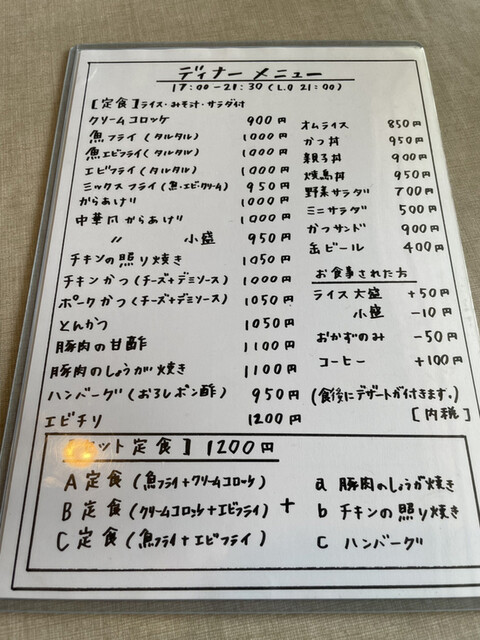 ディナーメニュー
17:00-21:30(L.O 21:00)
[定食]ライス・みそ汁・サラダ付
クリームコロッケ 900円
魚フライ(タルタル) 1000円
魚エビフライ(タルタル) 1000円
エビフライ(タルタル) 1000円
ミックスフライ(魚・エビ・クリーム) 950円
からあげ 1000円
中華风からあげ 1000円
〃 小盛 950円
チキンの照り焼き 1050円
チキンかつ(チーズ+デミソース) 1000円
ポークかつ(チーズ+デミソース) 1050円
とんかつ 1050円
豚肉の甘酢 1100円
豚肉のしょうが焼き 1100円
ハンバーグ(おろしポン酢) 950円
エビチリ 1200円
オムライス 850円
かつ丼 950円
親子丼 900円
焼鳥丼 950円
野菜サラダ 700円
ミニサラダ 500円
かつサンド 900円
缶ビール 400円
お食事された方
ライス大盛 +50円
小盛 -10円
おかずのみ -50円
コーヒー +100円
(食後にデザートが付きます。)
[内税]
ット定食] 1200円
A定食(魚フライ+クリームコロッケ)
B定食(クリームコロッケ+エビフライ)
C定食(魚フライ+エビフライ)
+
a 豚肉のしょうが焼き
b チキンの照り焼き
c ハンバーグ